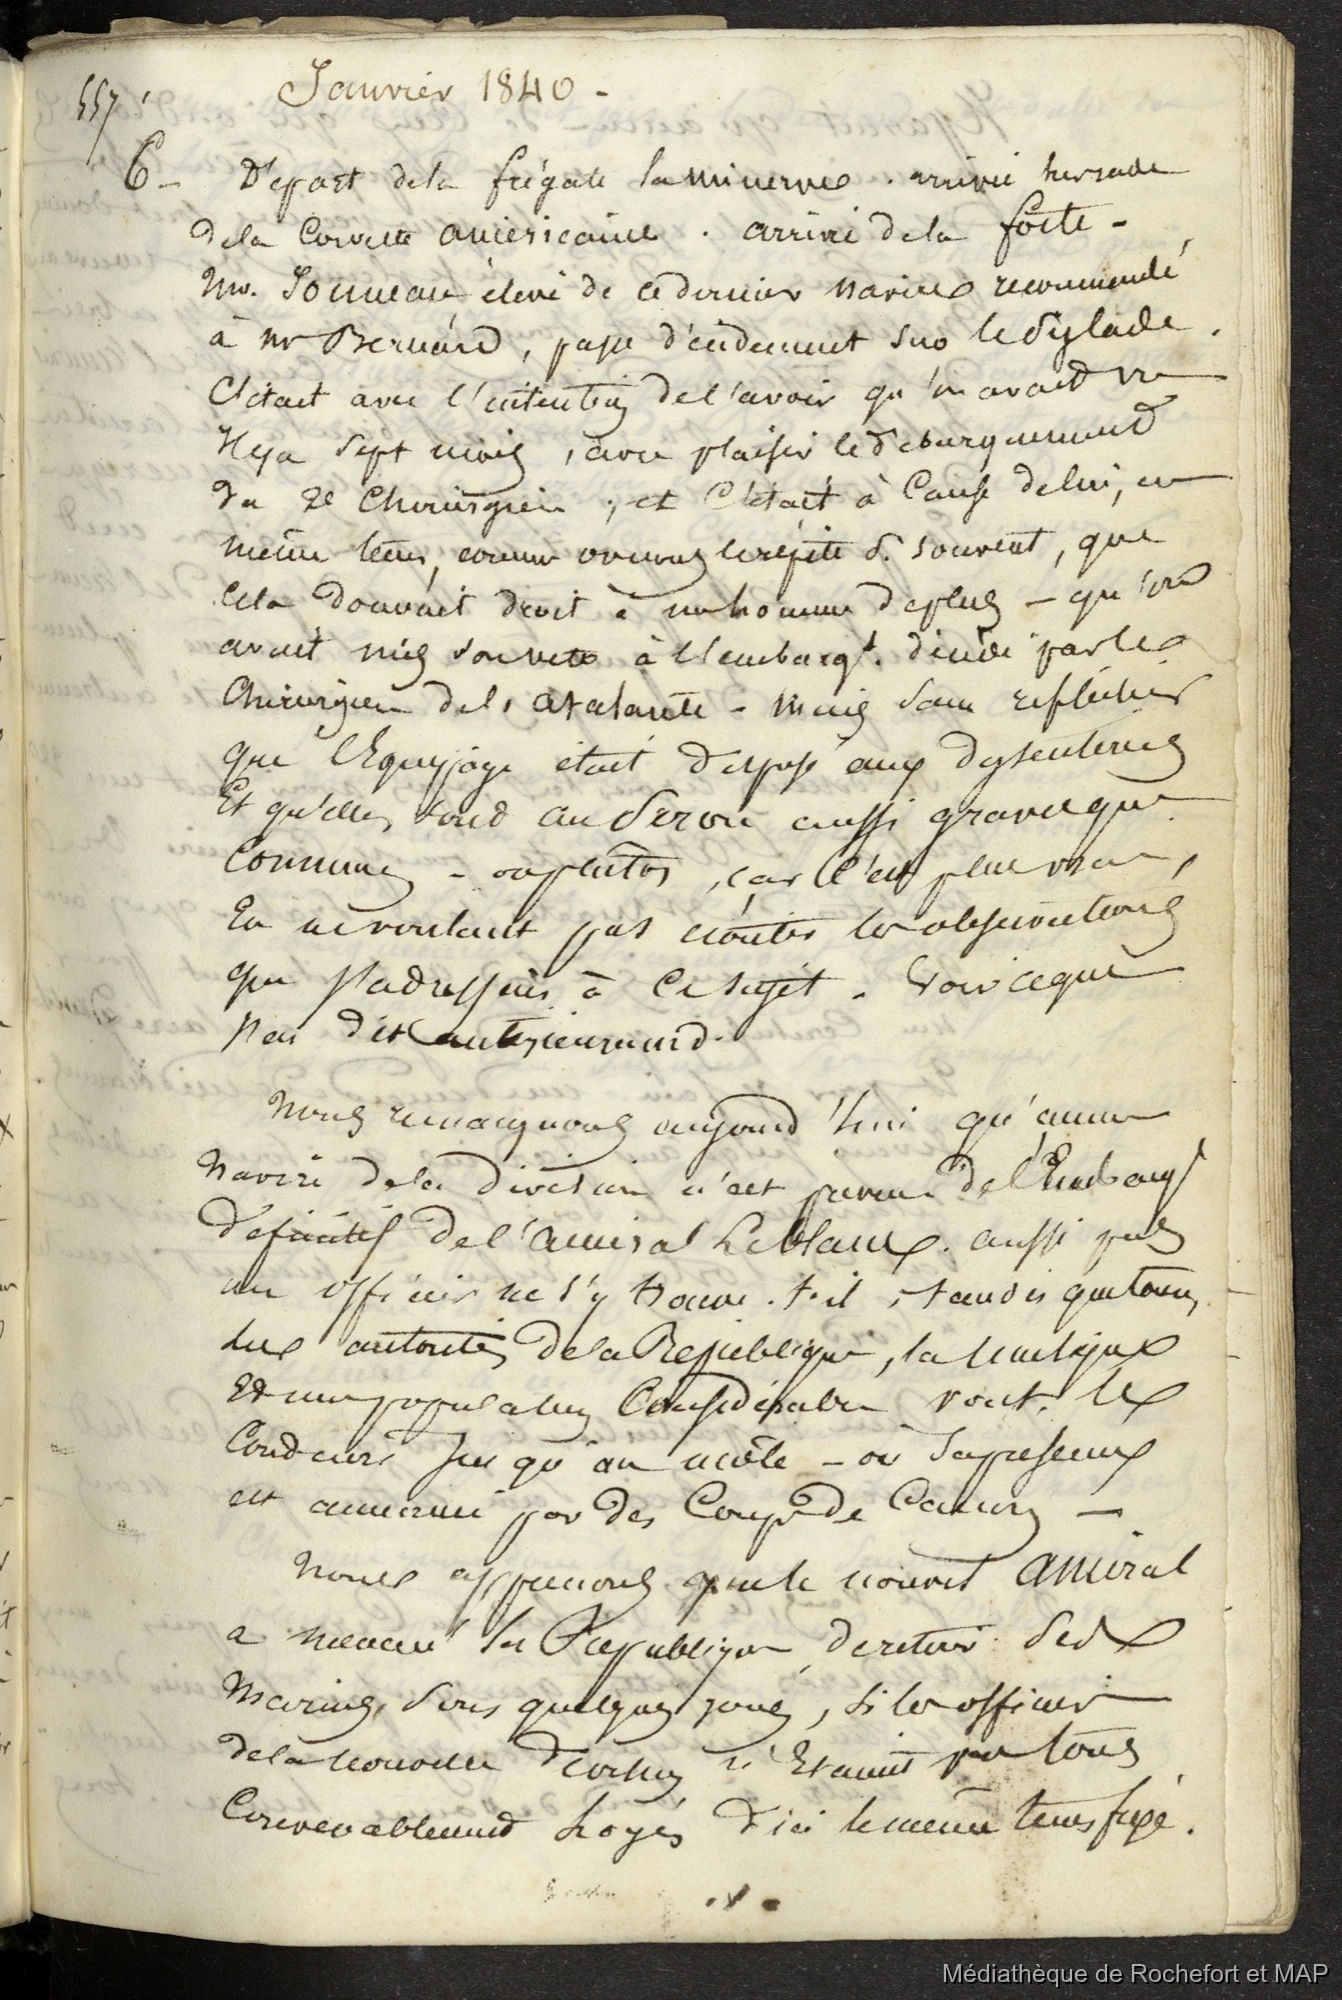 557
Janvier 1840 -
6 - Départ de la frégate la Minerve . arrivée
de la Corvette américaine . arrivé de la forte -
Mr. élevé de ce dernier navire recommandé
à Mr Bernard, passe sur le Dylade .
C'était avec l'intention de l'avoir qu'on avait vu
Il y a sept mois , avec plaisir le débarquement
du 2e Chirurgien ; et C'était à Cause de lui, en
même tems, comme le répéte si souvent, que
Cela donnait droit à un homme de plus - qu'on
avait mis à l'embarqt. par le
Chirurgien de l'atalante - Mais sans réfléchir
que l'Equipage était disposé aux dysenteries
Et qu'elles sont au aussi graves que
Communes - ou plutôt , car C'est plus vrai ,
En ne voulant pas écouter les observations
que j'adressais à Ce sujet . Voir ce que
J'ai dit antérieurement.
Nous remarquons aujourd'hui qu'aucun
Navire de la division n'est de l'Embarqt
définitif de l'amiral Leblanc . aussi pas
un officier ne s'y trouve-t-il , tandis que toutes
les autorités de la République, la musique
Et une population Considérable vont le
Conduire jusqu'au môle - où sa présence
est annoncée par des Coups de Canon -
Nous apprenons que le nouvel amiral
a menacé la République de retirer ses
Marins, sous quelques jours, si les officiers
de la nouvelle division n'Etaient pas tous
Convenablement logés d'ici le même tems fixé .
Médiathèque de Rochefort et MAP